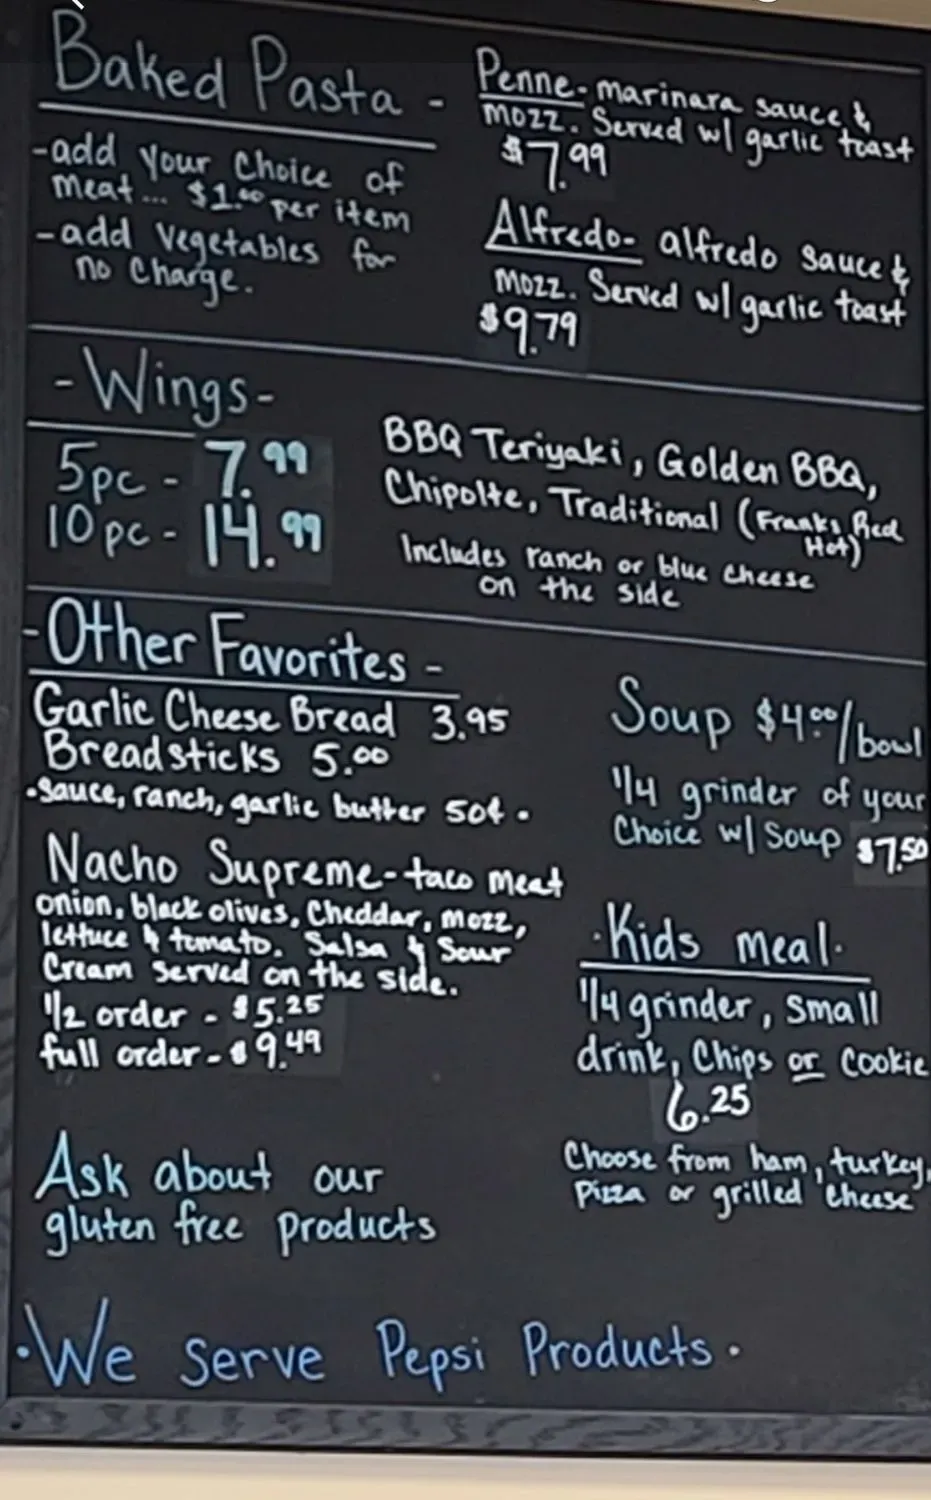 Baked Pasta -
-add your choice of
meat... $1.00 per item
-add vegetables for
no charge.
Penne- marinara sauce &
mozz. Served w/ garlic toast
$7.99
Alfredo- alfredo sauce &
mozz. Served w/ garlic toast
$9.79
-Wings-
5pc - 7.99
10pc - 14.99
BBQ Teriyaki, Golden BBQ,
Chipolte, Traditional (Franks Red
Hot)
Includes ranch or blue cheese
on the side
-Other Favorites-
Garlic Cheese Bread 3.95
Breadsticks 5.00
•sauce, ranch, garlic butter 50¢•
Nacho Supreme-taco meat
onion, black olives, Cheddar, mozz,
lettuce & tomato. Salsa & Sour
Cream served on the side.
1/2 order - $5.25
full order - $9.49
Soup $4.00/bowl
1/4 grinder of your
Choice w/ Soup $7.50
•Kids meal•
1/4 grinder, small
drink, Chips or Cookie
6.25
Choose from ham, turkey,
Pizza or grilled cheese
Ask about our
gluten free products
•We serve Pepsi Products•